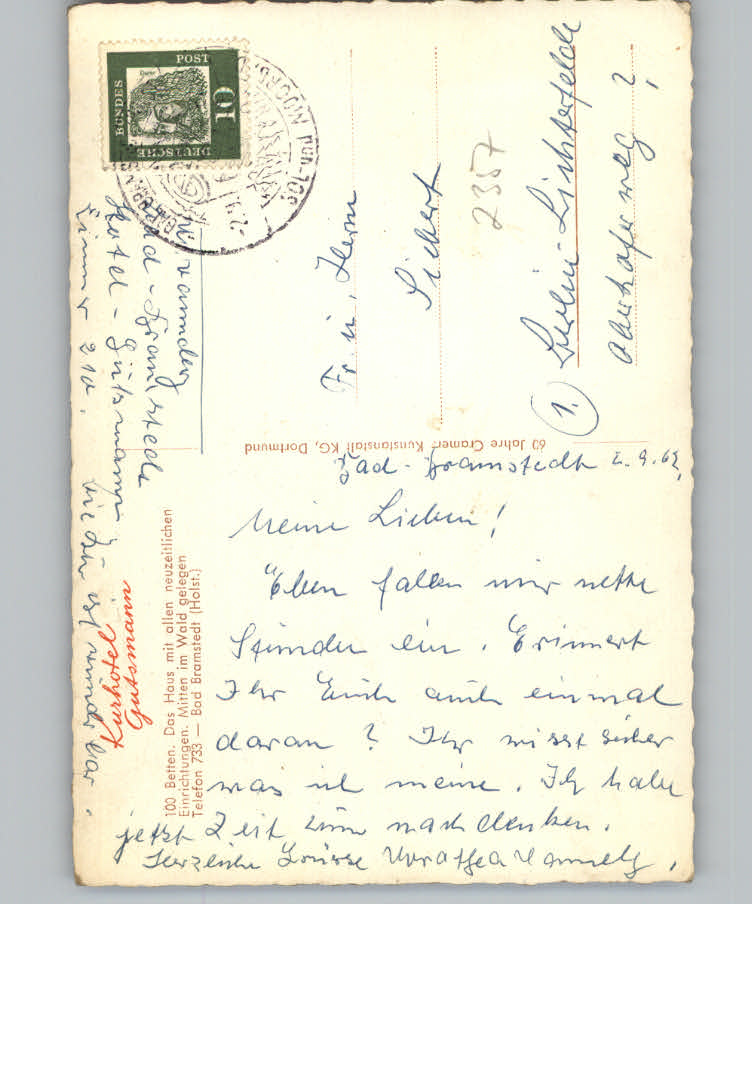 Bad-Bramstedt 2.9.62.
Meine Lieben!
Eben fallen mir nette
Stunden ein. Erinnert
Ihr Euch auch einmal
daran? Ihr wisst sicher
was ich meine. Ich habe
jetzt Zeit zum nachdenken.
Herzliche Grüsse Dorothea
Fr. u. Herrn
Siebert
(1.) Berlin-Lichterfelde
weg 2,
2357
Bad-Bramstedt
Hotel-Gutsmann
Zimmer 210.
Die Kur ist wunderbar.
Kurhotel
Gutsmann
100 Betten. Das Haus mit allen neuzeitlichen
Einrichtungen. Mitten im Wald gelegen
Telefon 733 — Bad Bramstedt (Holst.)
60 Jahre Cramers Kunstanstalt KG, Dortmund
DEUTSCHE
BUNDES
POST
10
Sol- und Moorbad